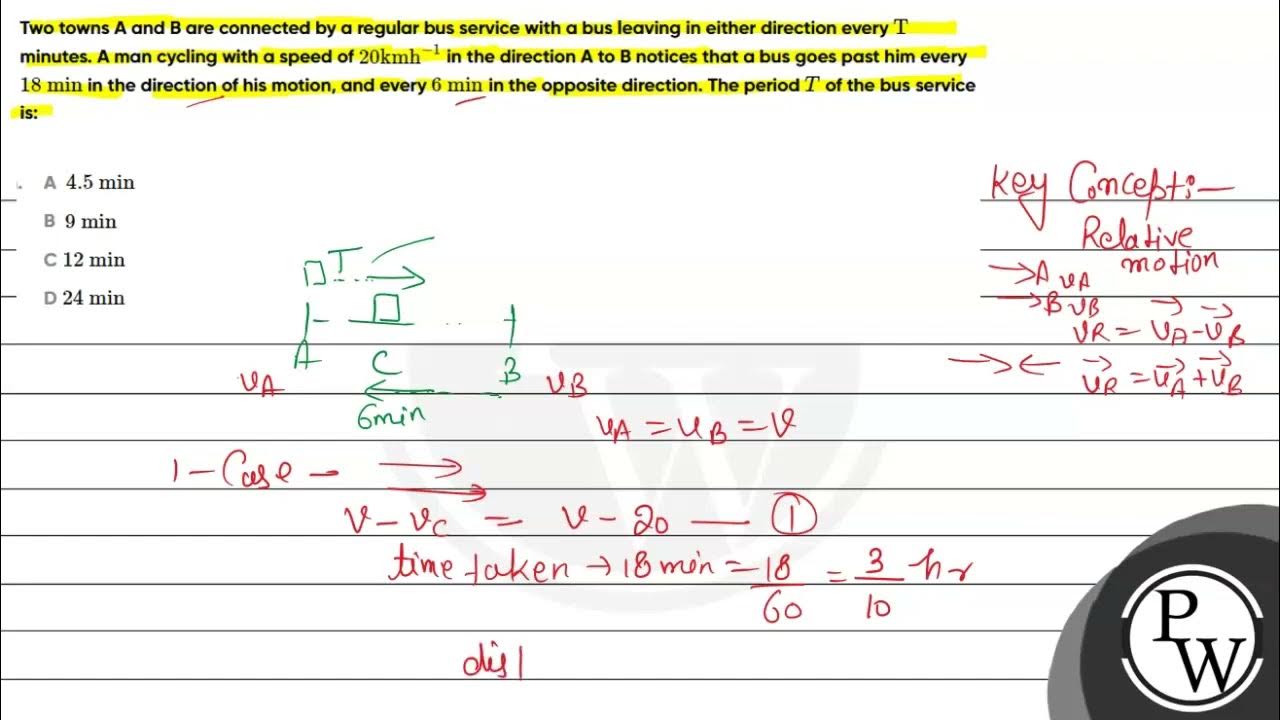 Two towns A and B are connected by a regular bus service with a bus leaving in either direction every T
minutes. A man cycling with a speed of 20kmh⁻¹ in the direction A to B notices that a bus goes past him every
18 min in the direction of his motion, and every 6 min in the opposite direction. The period T of the bus service
is:
A 4.5 min
B 9 min
C 12 min
D 24 min
Key Concept:-
Relative
motion
→ A vA
→ B vB
vR = vA - vB
→ ← vR = vA + vB
T
A C B
vA vB
6min
vA = vB = v
1 - Case -
v - vc = v - 20 — ①
time taken → 18 min = 18/60 = 3/10 hr
dis
P
W